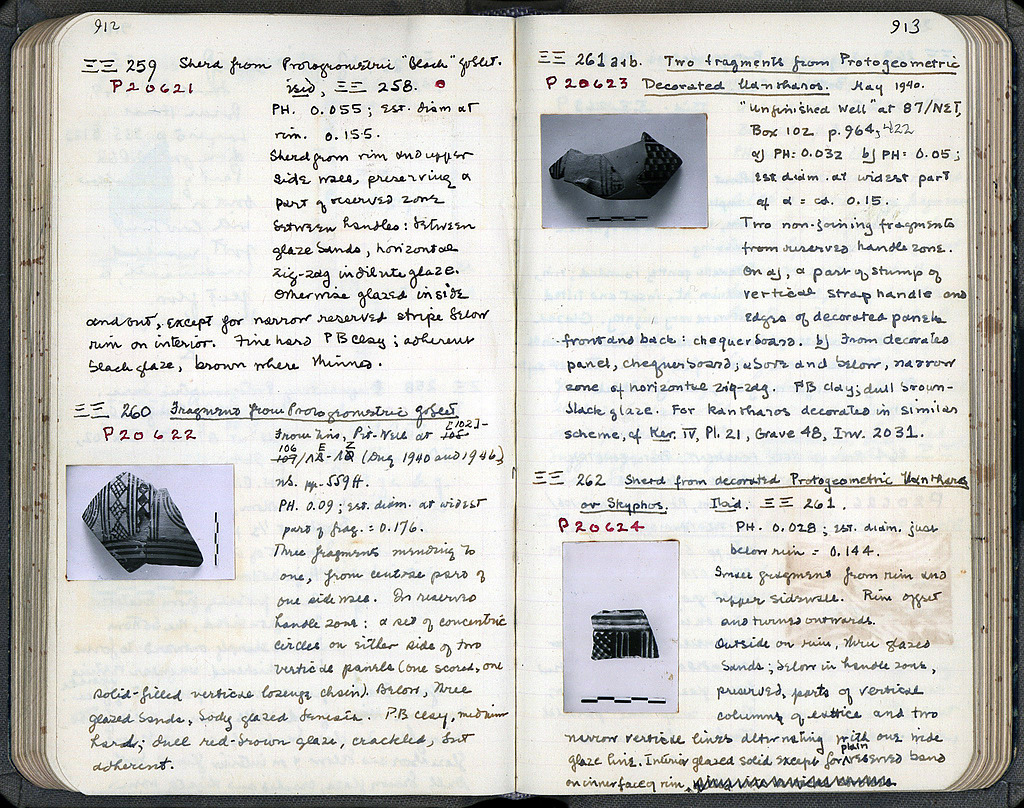 912
ΞΞ 259 Sherd from Protogeometric "Black" goblet.
P 20621 ibid, ΞΞ 258.
PH. 0.055; est. diam at
rim. 0.155.
Sherd from rim and upper
side wall, preserving a
part of reserved zone
between handles: between
glaze bands, horizontal
zig-zag in dilute glaze.
Otherwise glazed inside
and out, except for narrow reserved stripe below
rim on interior. Fine hard PB clay; adherent
black glaze, brown where thinned.
ΞΞ 260 Fragment from Protogeometric goblet
P 20622 From Pit-Well at [102]-
106
(Dug 1940 and 1946)
nb. pp. 559 ff.
PH. 0.09; est. diam. at widest
part of frag. = 0.176.
Three fragments mending to
one, from centre part of
one side wall. In reserved
handle zone: a set of concentric
circles on either side of two
vertical panels (one scored, one
solid-filled vertical lozenge chain). Below, three
glazed bands, body glazed beneath. PB clay, medium
hard; dull red-brown glaze, crackled, but
adherent.
913
ΞΞ 261 a+b. Two fragments from Protogeometric
P 20623 Decorated Kantharos. May 1940.
"Unfinished Well" at 87/ΝΕΤ,
Box 102 p. 964; 422
a) PH: 0.032 b) PH: 0.05;
est diam. at widest part
of a = ca. 0.15.
Two non-joining fragments
from reserved handle zone.
On a), a part of stump of
vertical strap handle and
edges of decorated panels
front and back: chequerboard. b) From decorated
panel, chequerboard; above and below, narrow
zone of horizontal zig-zag. PB clay; dull brown-
black glaze. For kantharos decorated in similar
scheme, cf. Ker. IV, Pl. 21, Grave 48, Inv. 2031.
ΞΞ 262 Sherd from decorated Protogeometric Kantharos
or Skyphos. Ibid. ΞΞ 261.
P 20624 PH. 0.028; est. diam. just
below rim = 0.144.
Small fragment from rim and
upper sidewall. Rim offset
and turned outwards.
Outside on rim, three glazed
bands; below in handle zone,
preserved, parts of vertical
columns of lattice and two
narrow vertical lines alternating with one wide
glaze line. Interior glazed solid except for plain reserved band
on inner face of rim.